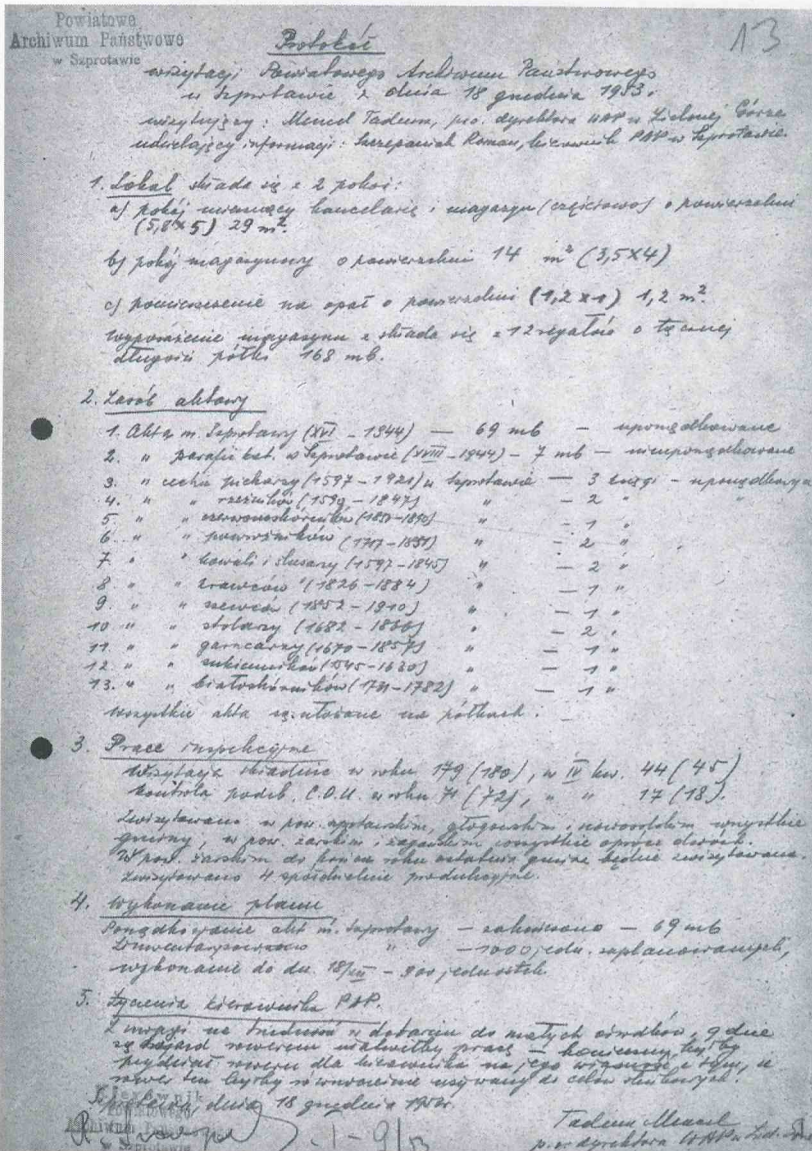 Powiatowe
Archiwum Państwowe
w Szprotawie
13
Protokół
wizytacji Powiatowego Archiwum Państwowego
w Szprotawie z dnia 18 grudnia 1953.
wizytujący: Mencel Tadeusz, p.o. dyrektora WAP w Zielonej Górze
udzielający informacji: Szczepaniak Roman, kierownik PAP w Szprotawie.
1. Lokal składa się z 2 pokoi:
a) pokój mieszczący kancelarię i magazyn (częściowo) o powierzchni
(5,8 x 5) 29 m².
b) pokój magazynowy o powierzchni 14 m² (3,5 x 4)
c) pomieszczenie na opał o powierzchni (1,2 x 1) 1,2 m².
Wyposażenie magazynu składa się z 12 regałów o łącznej
długości półki 168 mb.
2. Zasób aktowy
1. Akta m. Szprotawy (XVI - 1944) — 69 mb — uporządkowane
2. " parafii kat. w Szprotawie (XVIII - 1944) - 7 mb - nieuporządkowane
3. " cechu piekarzy (1597 - 1921) w Szprotawie — 3 księgi - uporządkowane
4. " " rzeźników (1599 - 1847) " - 2 "
5. " " czerwonoskórników " - 1 "
6. " " powroźników " - 2 "
7. " " kowali i ślusarzy (1597-1845) " - 2 "
8 " " krawców (1826-1884) " - 1 "
9. " " szewców (1852 - 1910) " - 1 "
10 " " stolarzy " - 2 "
11. " " garncarzy (1670-1857) " - 1 "
12 " " sukienników (1545-1630) " - 1 "
13. " " białoskórników (1731-1782) " - 1 "
wszystkie akta są ułożone na półkach.
3. Prace inspekcyjne
Wizytacja składnic w roku 179 (180), w IV kw. 44 (45)
Kontrola w roku 71 (72), " " 17 (18).
Zwizytowano w pow. głogowskim i nowosolskim wszystkie
gminy, w pow. żarskim i żagańskim wszystkie oprócz dwóch.
W pow. żarskim do końca roku ostatnia gmina będzie zwizytowana.
Zwizytowano 4 spółdzielnie produkcyjne.
4. Wykonanie planu
Porządkowanie akt m. Szprotawy — zakończono — 69 mb
Inwentaryzowanie " — 1000 jedn. zaplanowanych,
wykonanie do dn. 18/XII - 900 jednostek
5. Życzenia kierownika PAP.
Z uwagi na trudności w dotarciu do małych ośrodków, gdzie
rowerem ułatwiłby pracę —
roweru dla kierownika na jego z tym, że
rower ten byłby używany do celów służbowych.
dnia 18 grudnia
Kierownik
Archiwum
w Szprotawie
Tadeusz Mencel
p.o. dyrektora WAP w